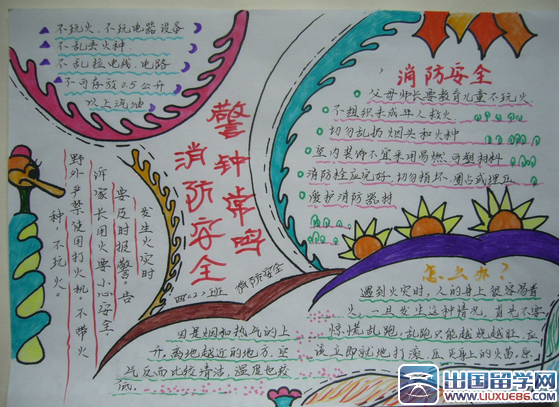 不玩火、不玩电器设备
不乱丢火种
不乱拉电线、电路
不可存放0.5公斤
以上汽油
警钟常鸣
消防安全
四(2)班 消防安全
消防安全
父母师长要教育儿童不玩火
不组织未成年人救火
切勿乱扔烟头和火种
室内装饰不宜采用易燃、可塑材料
消防栓应完好,切勿损坏、圈占或埋压
爱护消防器材
发生火灾时
要及时报警,告
诉家长用火要小心安全,
野外严禁使用打火机,不带火
种,不玩火。
因是烟和热气的上
升,离地越近的地方,空
气反而比较清洁,温度也较
低。
怎么办?
遇到火灾时,人的身上很容易着
火,一旦发生这种情况,首先不要
惊慌乱跑,乱跑只能越烧越旺,应
该立即就地打滚,压灭身上的火苗,
出国留学网
www.liuxue86.com